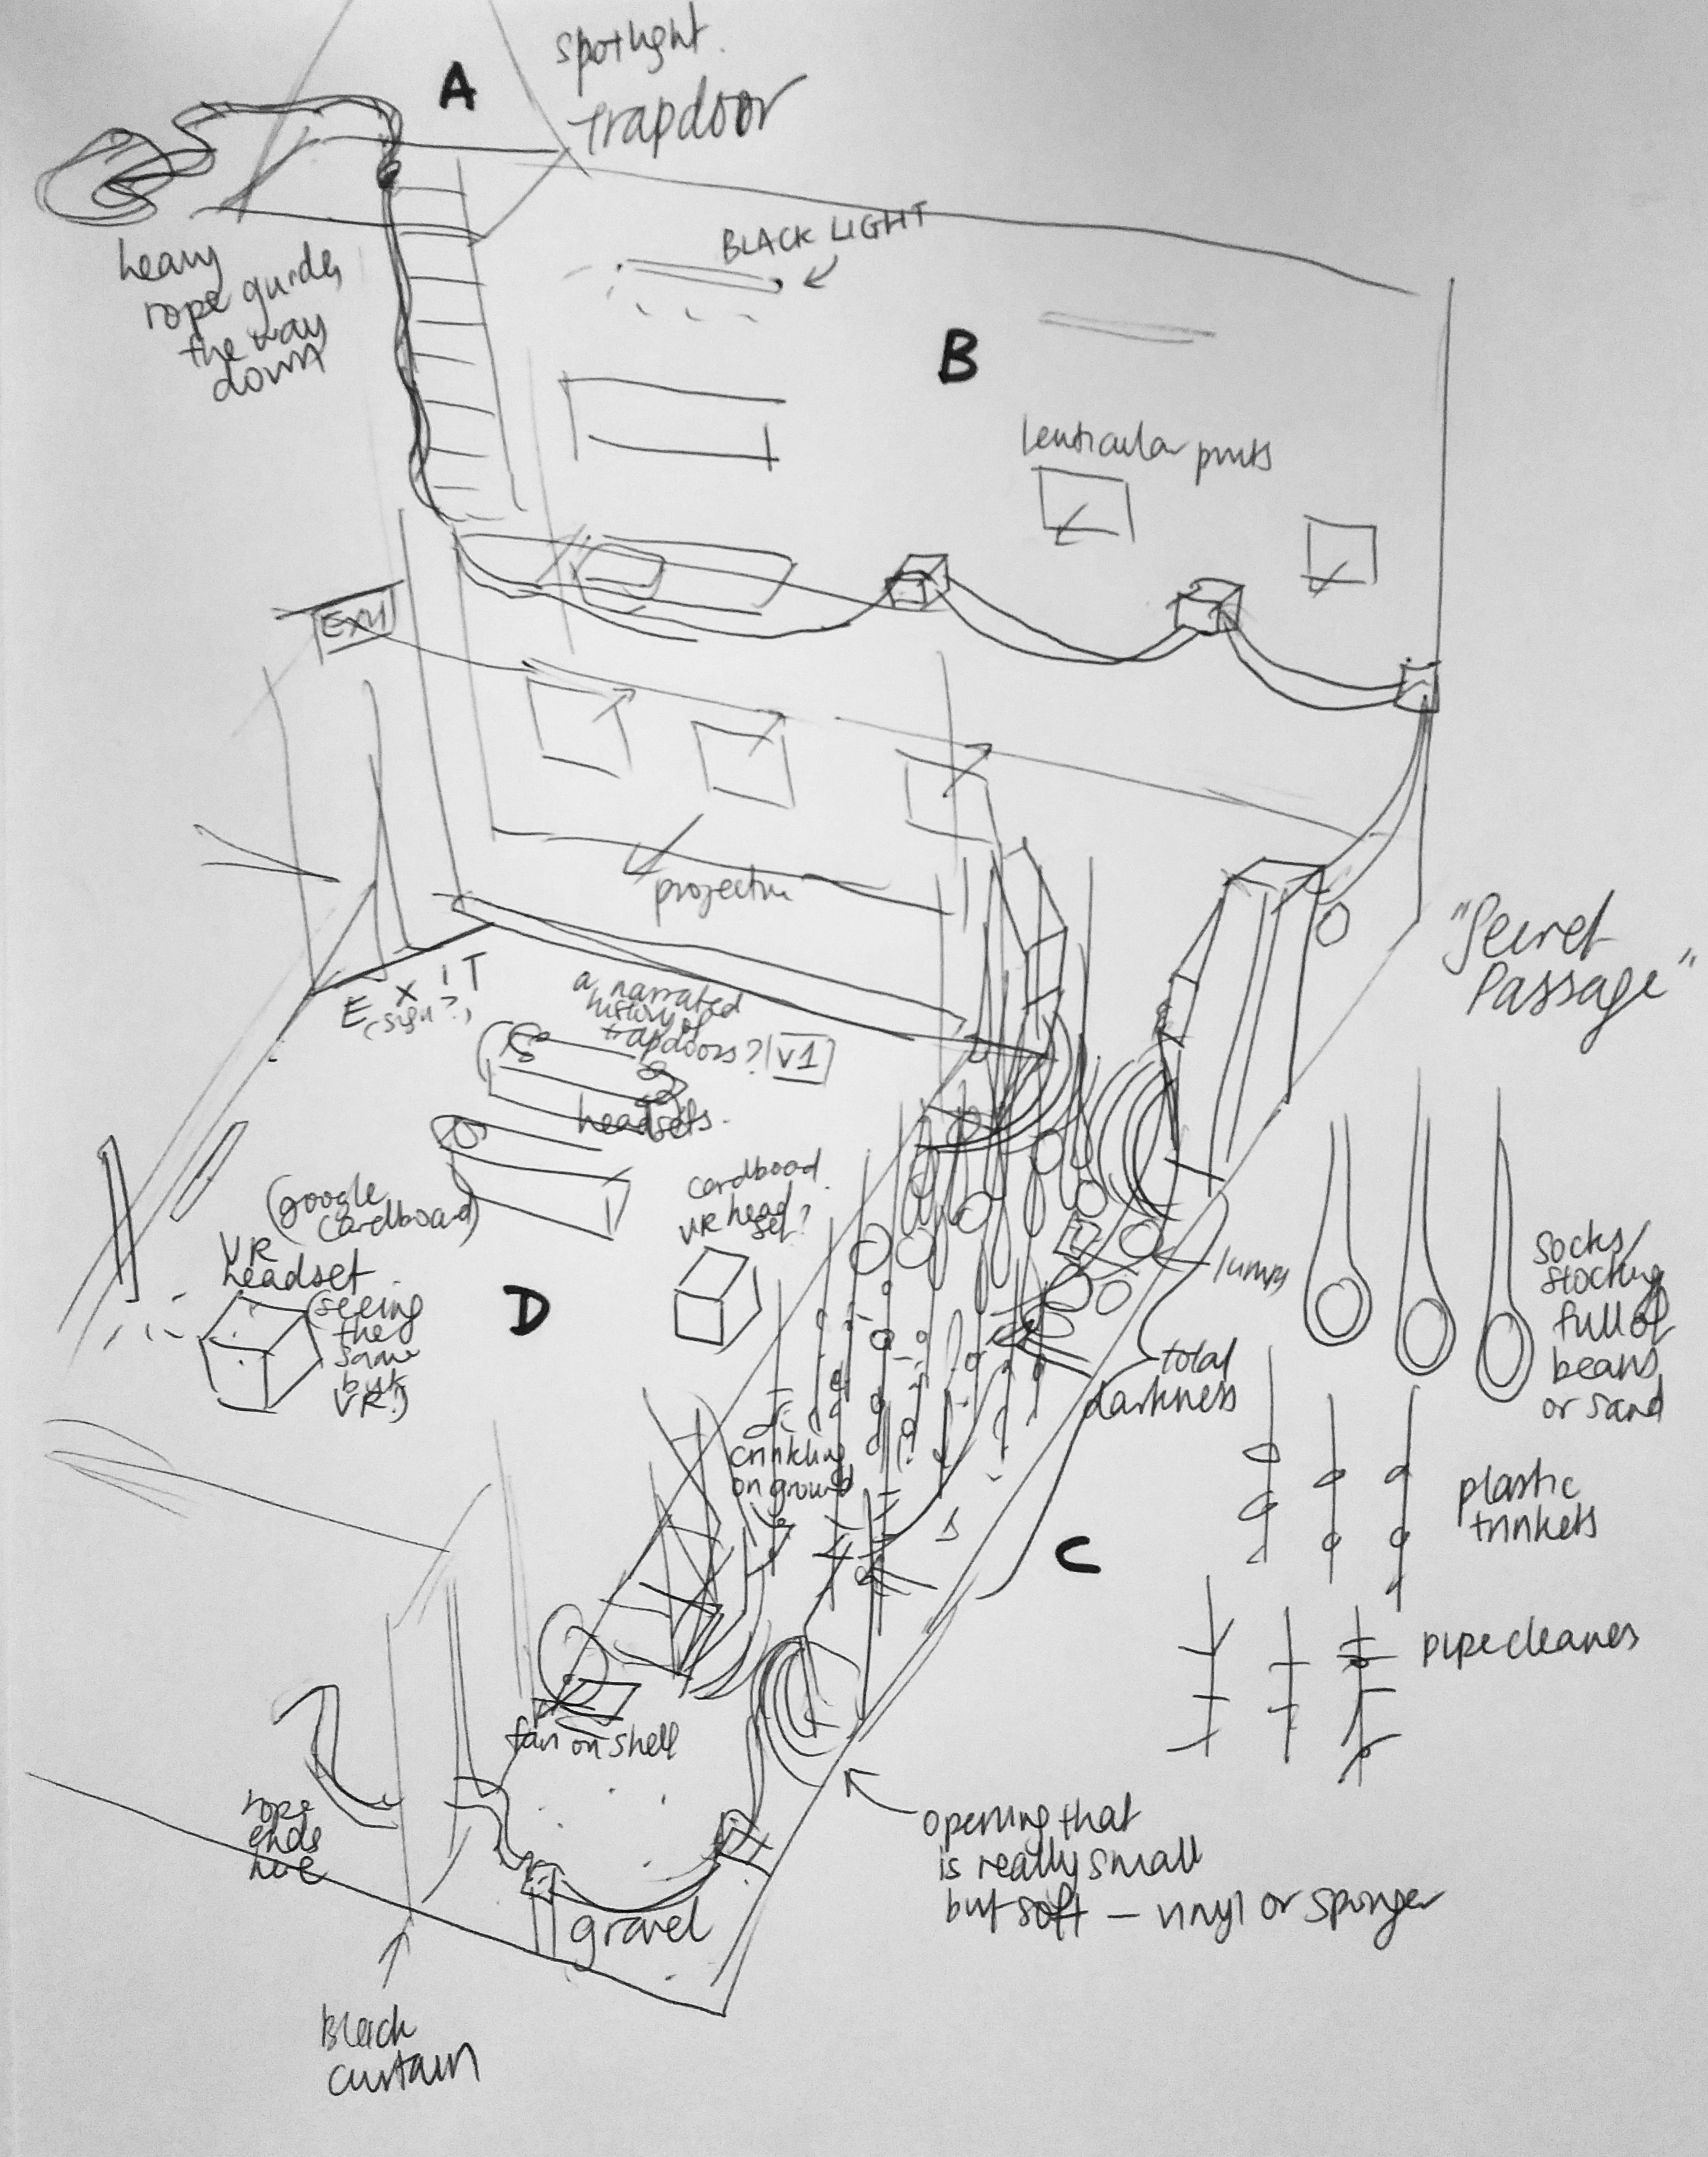 A
spotlight.
trapdoor
heavy
rope guides
the way
down
BLACK LIGHT
B
lenticular prints
EXIT
projection
EXIT
(sign?)
"Secret
Passage"
a narrated
history of
trapdoors?
v1
headsets.
(google
cardboard)
VR
headset
(seeing
the
same
but
VR?)
cardboard
VR head
set?
D
lumps
socks/
stocking
full of
beans
or sand
total
darkness
crinkling
on ground
C
plastic
trinkets
pipecleaners
fan on shell
rope
ends
here
gravel
opening that
is really small
but soft — vinyl or sponges
Black
curtain